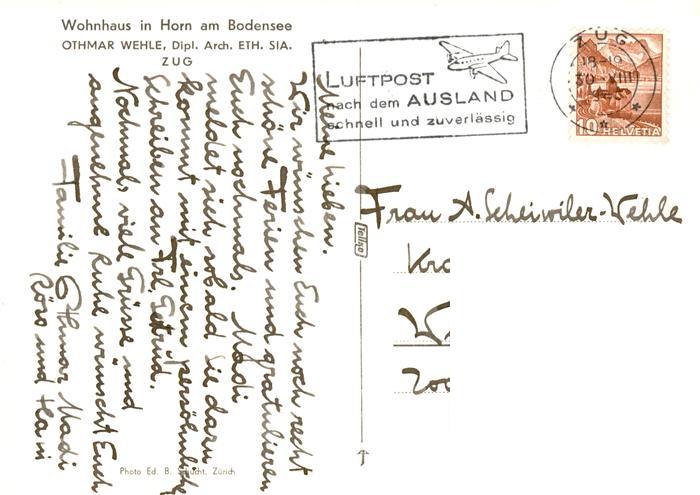 Wohnhaus in Horn am Bodensee
OTHMAR WEHLE, Dipl. Arch. ETH. SIA.
ZUG
LUFTPOST
nach dem AUSLAND
schnell und zuverlässig
ZUG
18-19
30 XIII
10 HELVETIA
Meine Lieben.
Wir wünschen Euch noch recht
schöne Ferien und gratulieren
Euch nochmals. Madi
meldet sich sobald Sie dazu
kommt mit einem persöhnlichen
Schreiben an Frl. Gertrud.
Nochmals viele Grüsse und
angenehme Ruhe wünscht Euch
Familie Othmar Madi
und Hansi
Frau A. Scheiwiler-Wehle
Tellko
Photo Ed. B. Schucht. Zürich